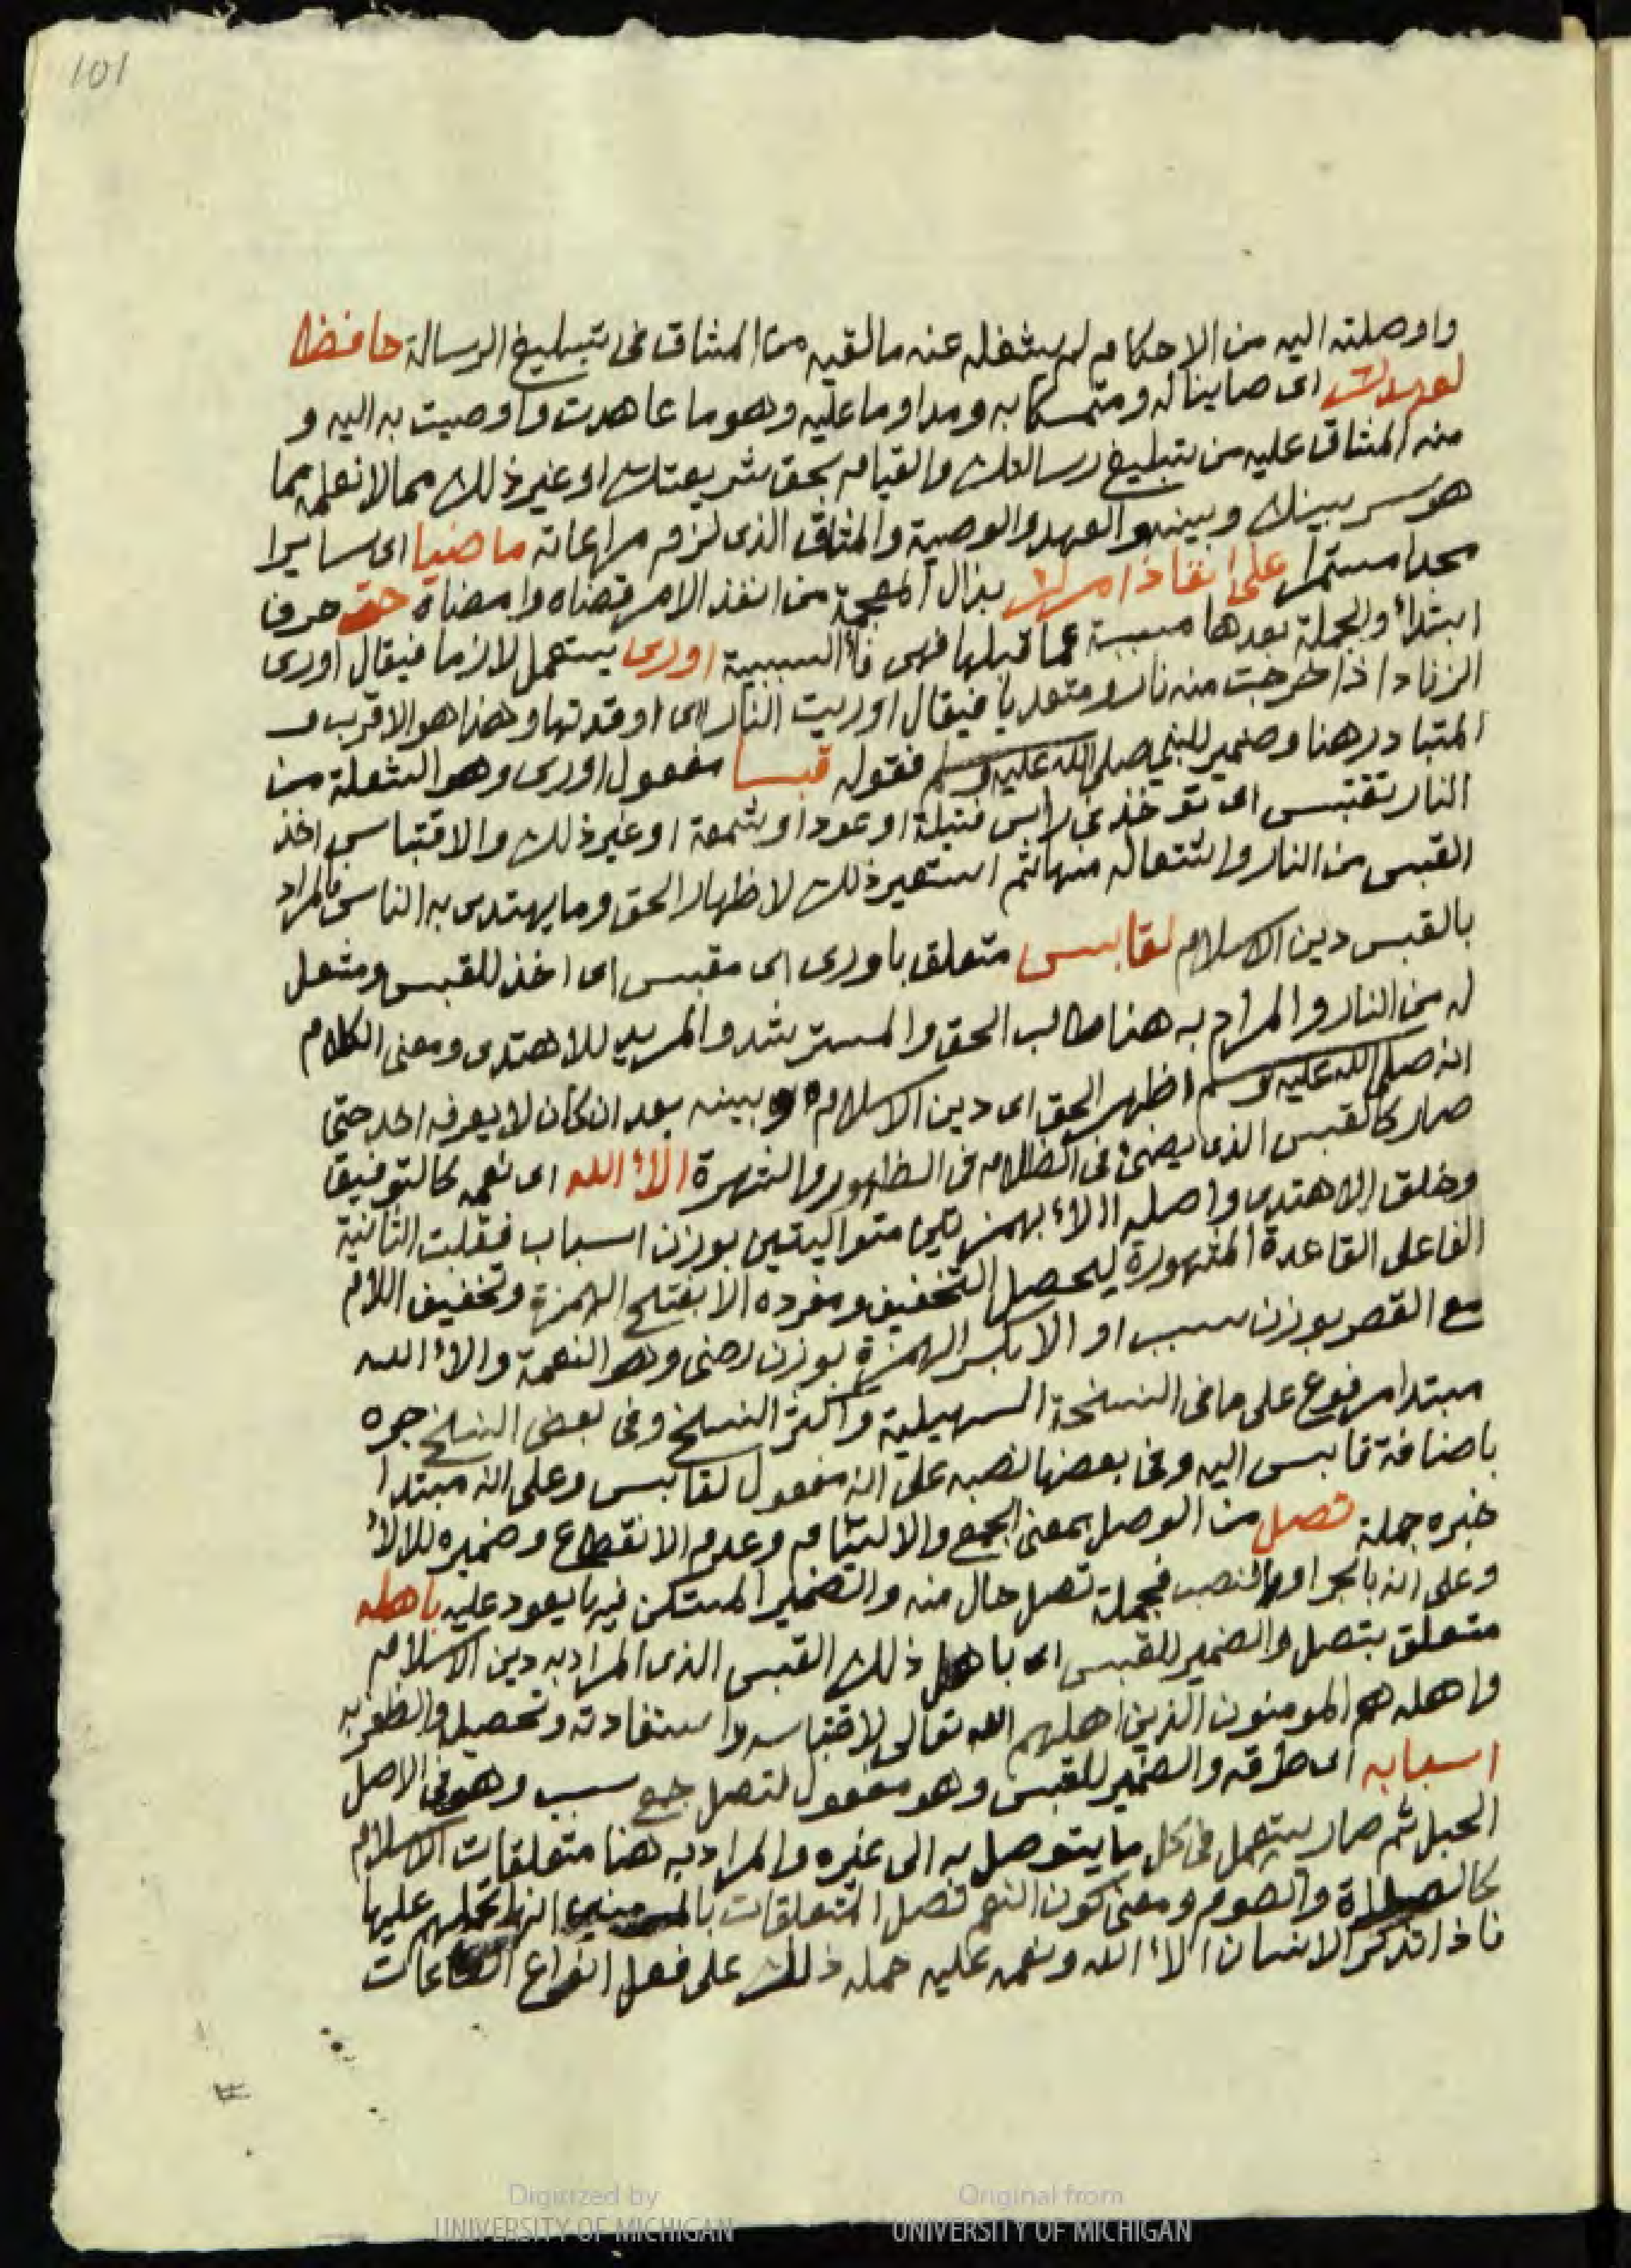 101
واوصلته اليه من الاحكام لم يشغله عنه ما لقيه من المشاق فى تبليغ الرسالة حافظا
لعهدك اى صاينا له ومتمسكا به ومداوما عليه وهو ما عاهدت واوصيت به اليه و
منه المثاق عليه من تبليغ رسالتك والقيام بحق شريعتك او غير ذلك مما لا نعلمه مما
هو سر بينك وبينه والعهد والوصية والمثاق الذى لزم مراعاته ماضيا اى سايرا
مجدا مستمرا على انفاذ امرك بذال المعجمة من انفذ الامر قضاه وامضاه حتى حرف
ابتداأ والجملة بعدها مسببة عما قبلها فهى فاأ السببية اورى يستعمل لازما فيقال اورى
الزناد اذا خرجت منه نار ومتعديا فيقال اوريت النار اى اوقدتها وهذا هو الاقرب و
المتبادر هنا وضمير للنبى صلى الله عليه وسلم فقوله قبسا مفعول اورى وهو الشعلة من
النار تقتبس اى تؤخذ فى راس فتيلة او عود او شمعة او غير ذلك والاقتباس اخذ
القبس من النار واشتعاله منها ثم استعير ذلك لاظهار الحق وما يهتدى به الناس فالمراد
بالقبس دين الاسلام لقابس متعلق باورى اى مقبس اى اخذ للقبس ومشعل
له من النار والمراد به هنا طالب الحق والمسترشد والمريد للاهتدى ومعنى الكلام
انه صلى الله عليه وسلم اظهر الحق اى دين الاسلام وبينه بعد ان كان لا يعرفه احد حتى
صار كالقبس الذى يضئ فى الظلام فى الظهور والشهرة الاأ الله اى نعمه كالتوفيق
وخلق الاهتدى واصله االاأ بهمزتين متواليتين بوزن اسباب فقلبت الثانية
الفا على القاعدة المشهورة ليحصل التخفيف ومفرده الا بفتح الهمزة وتخفيف اللام
مع القصر بوزن سبب او الا بكسر الهمزة بوزن رضى وهو النعمة والاأ الله
مبتدا مرفوع على ما فى النسخة السهيلية واكثر النسخ وفى بعض النسخ جره
باضافة قابس اليه وفى بعضها نصبه على انه مفعول لقابس وعلى انه مبتدا
خبره جملة تصل من الوصل بمعنى الجمع والالتيام وعدم الانقطاع وضميره للالاأ
وعلى انه بالجر او بالنصب فجملة تصل حال منه والضمير المستكن فيها يعود عليه باهله
متعلق بتصل والضمير للقبس اى باهل ذلك القبس الذى المراد به دين الاسلام
واهله هم المومنون الذين اهلهم الله تعالى لاقتباسه واستفادته وتحصيل والظفر به
اسبابه اى طرقه والضمير للقبس وهو مفعول لتصل جمع سبب وهو فى الاصل
الحبل ثم صار يستعمل فى كل ما يتوصل به الى غيره والمراد به هنا متعلقات الاسلام
كالصلاة والصوم ومعنى كون النعم تصل المتعلقات بالمومنين انها تحملهم عليها
فاذا تذكر الانسان الاأ الله ونعمه عليه حمله ذلك على فعل انواع الطاعات
Digitized by
UNIVERSITY OF MICHIGAN
Original from
UNIVERSITY OF MICHIGAN